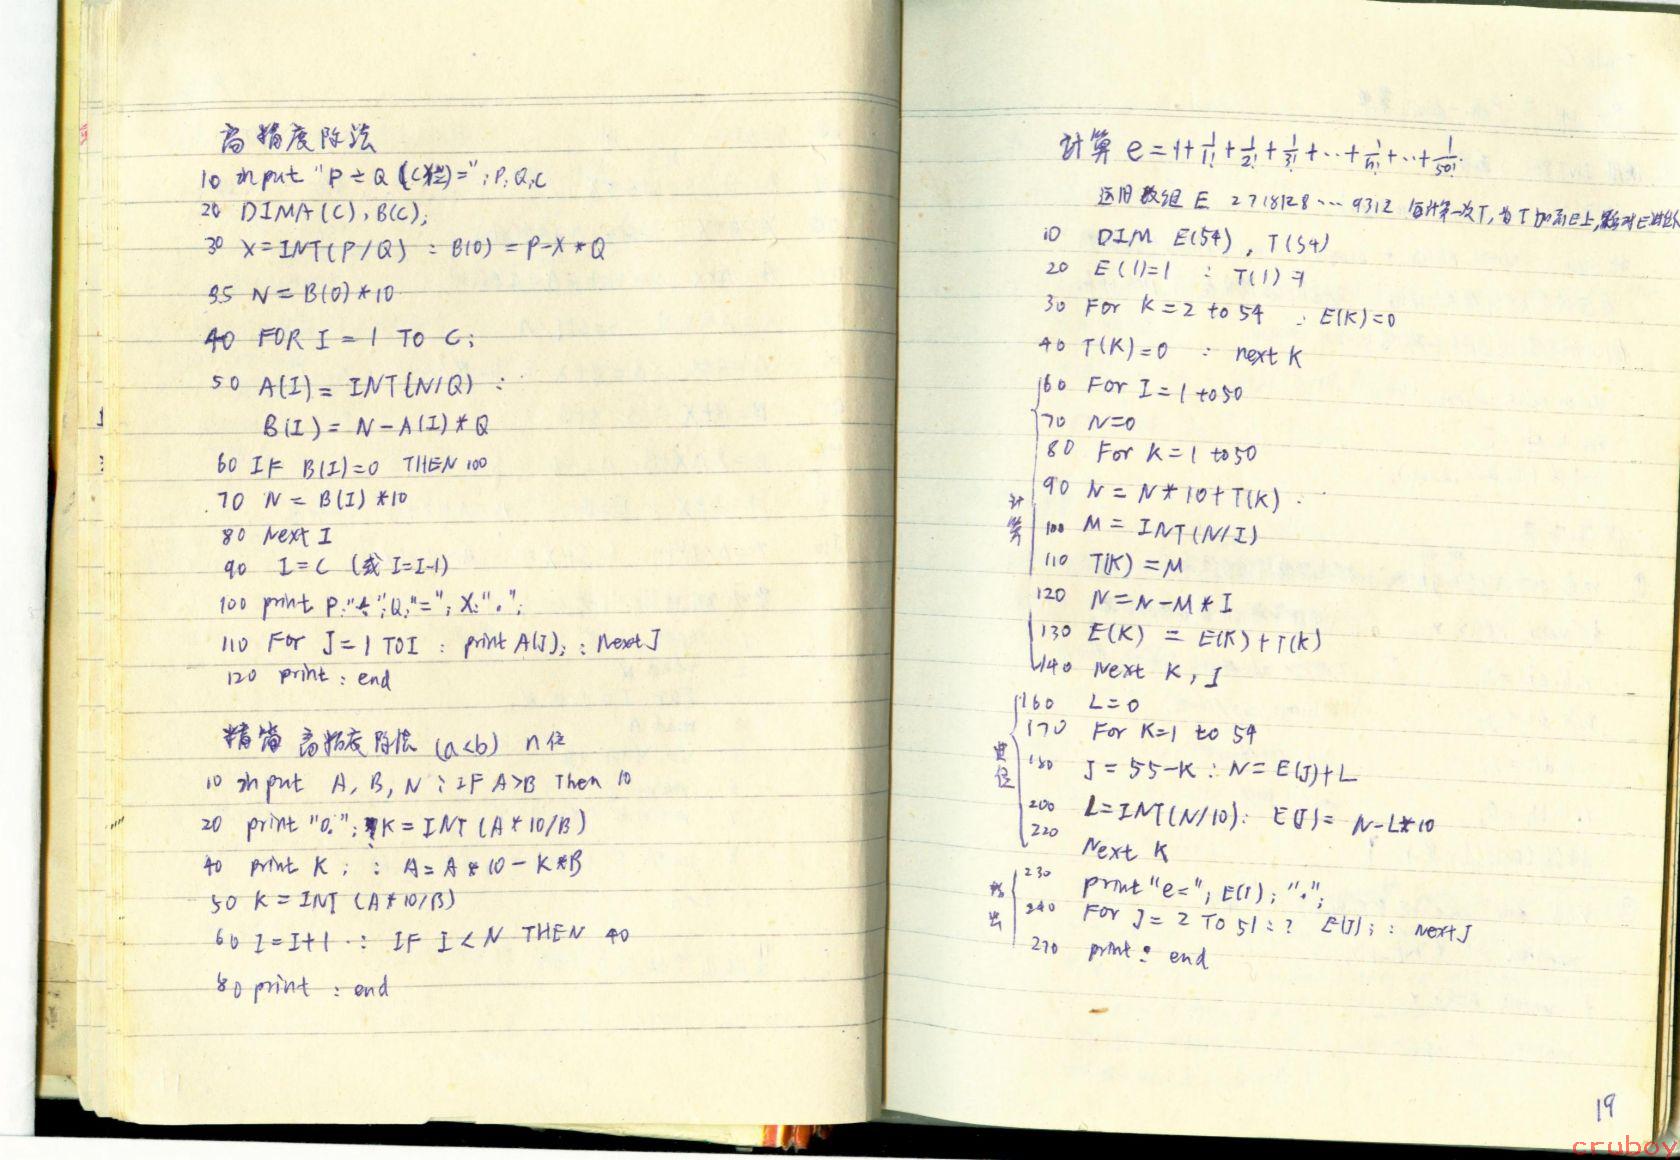 高精度除法
10 input "P÷Q (C位)="; P,Q,C
20 DIMA(C), B(C);
30 X=INT(P/Q) : B(0)=P-X*Q
35 N=B(0)*10
40 FOR I=1 TO C;
50 A(I)=INT(N/Q) :
B(I)=N-A(I)*Q
60 IF B(I)=0 THEN 100
70 N=B(I)*10
80 Next I
90 I=C (或 I=I-1)
100 print P;"÷";Q;"="; X;".";
110 For J=1 TO I : print A(J); : Next J
120 print : end
精简 高精度除法 (a<b) n位
10 input A, B, N : IF A>B Then 10
20 print "0."; : K=INT(A*10/B)
40 print K; : A=A*10-K*B
50 K=INT(A*10/B)
60 I=I+1 : IF I<N THEN 40
80 print : end
计算 e=1+1/1!+1/2!+1/3!+...+1/n!+...+1/50!.
运用数组 E 2718128...9312 每计算一次T,
10 DIM E(54), T(54)
20 E(1)=1 : T(1)=1
30 For K=2 to 54 : E(K)=0
40 T(K)=0 : next K
计算
60 For I=1 to 50
70 N=0
80 For K=1 to 50
90 N=N*10+T(K).
100 M=INT(N/I)
110 T(K)=M
120 N=N-M*I
130 E(K)=E(K)+T(K)
140 Next K, I
进位
160 L=0
170 For K=1 to 54
180 J=55-K : N=E(J)+L
200 L=INT(N/10): E(J)=N-L*10
220 Next K
输出
230 print "e="; E(1); ".";
240 For J=2 TO 51 : ? E(J); : next J
270 print : end
19
cruboy